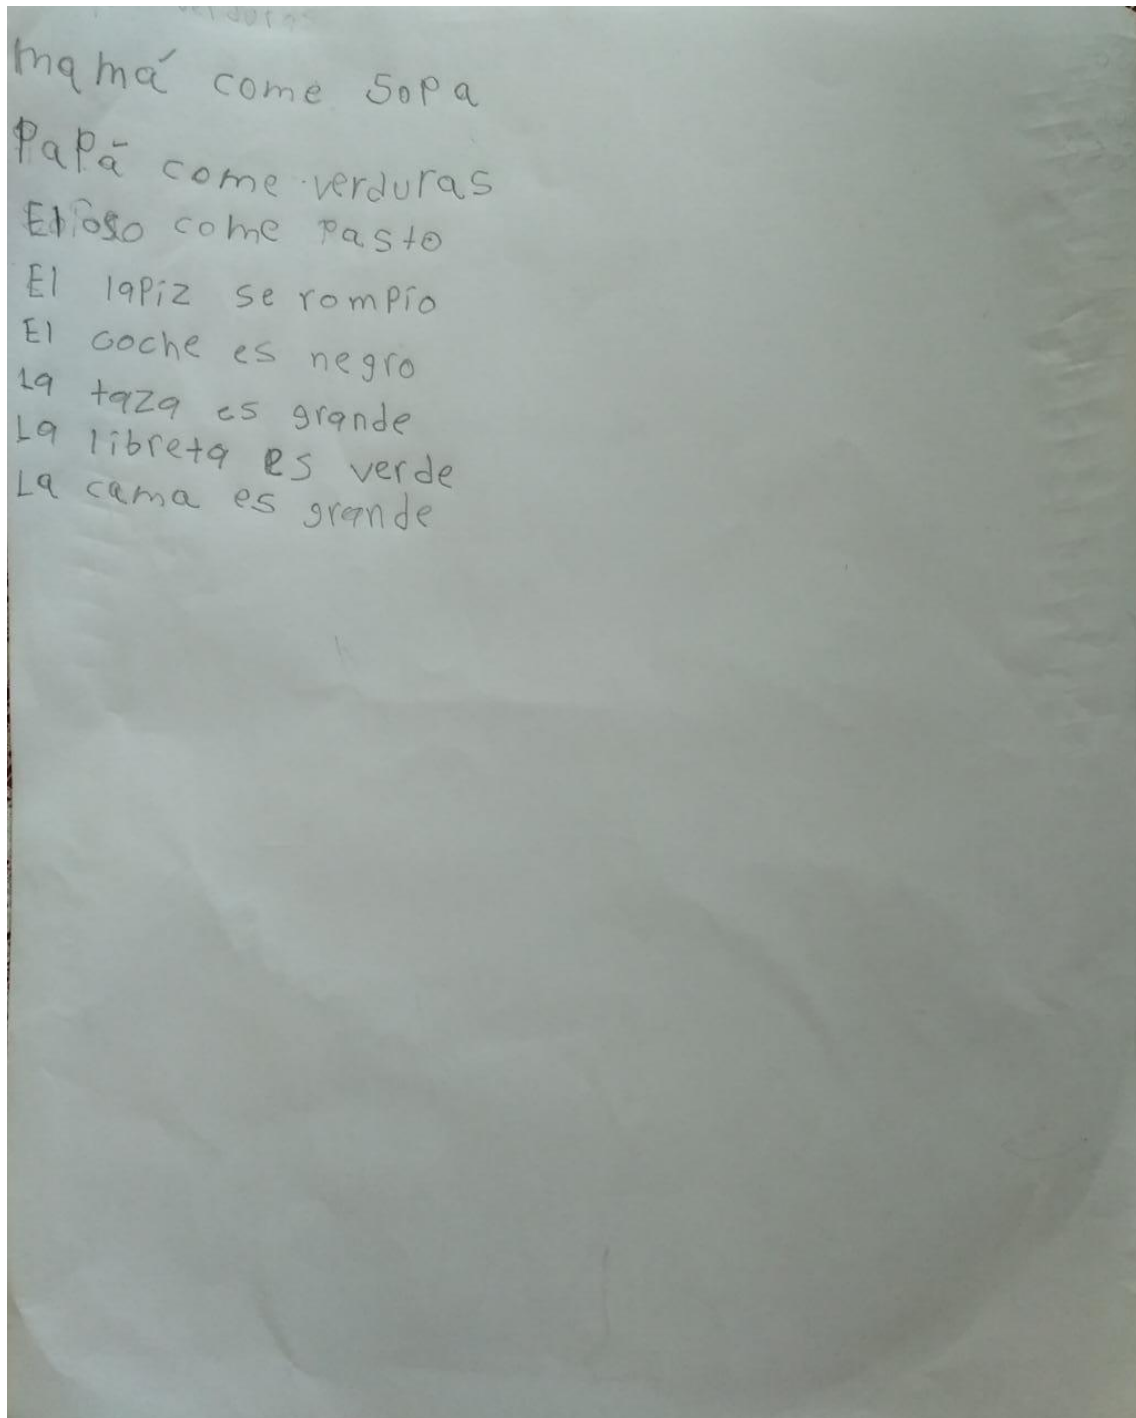 mamá come sopa
Papá come verduras
El oso come pasto
El lapiz se rompio
El coche es negro
La taza es grande
La libreta es verde
La cama es grande